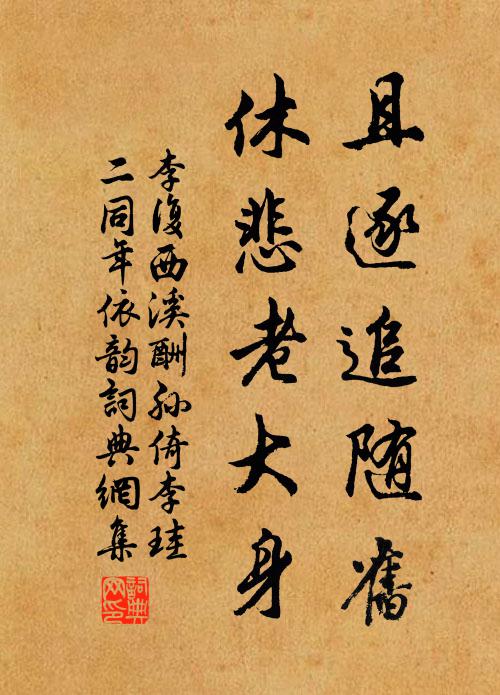 且逐追随舊
休悲老大身
李復西溪酬孙倚李珪
二同年依韵詞典網集
詞典網印